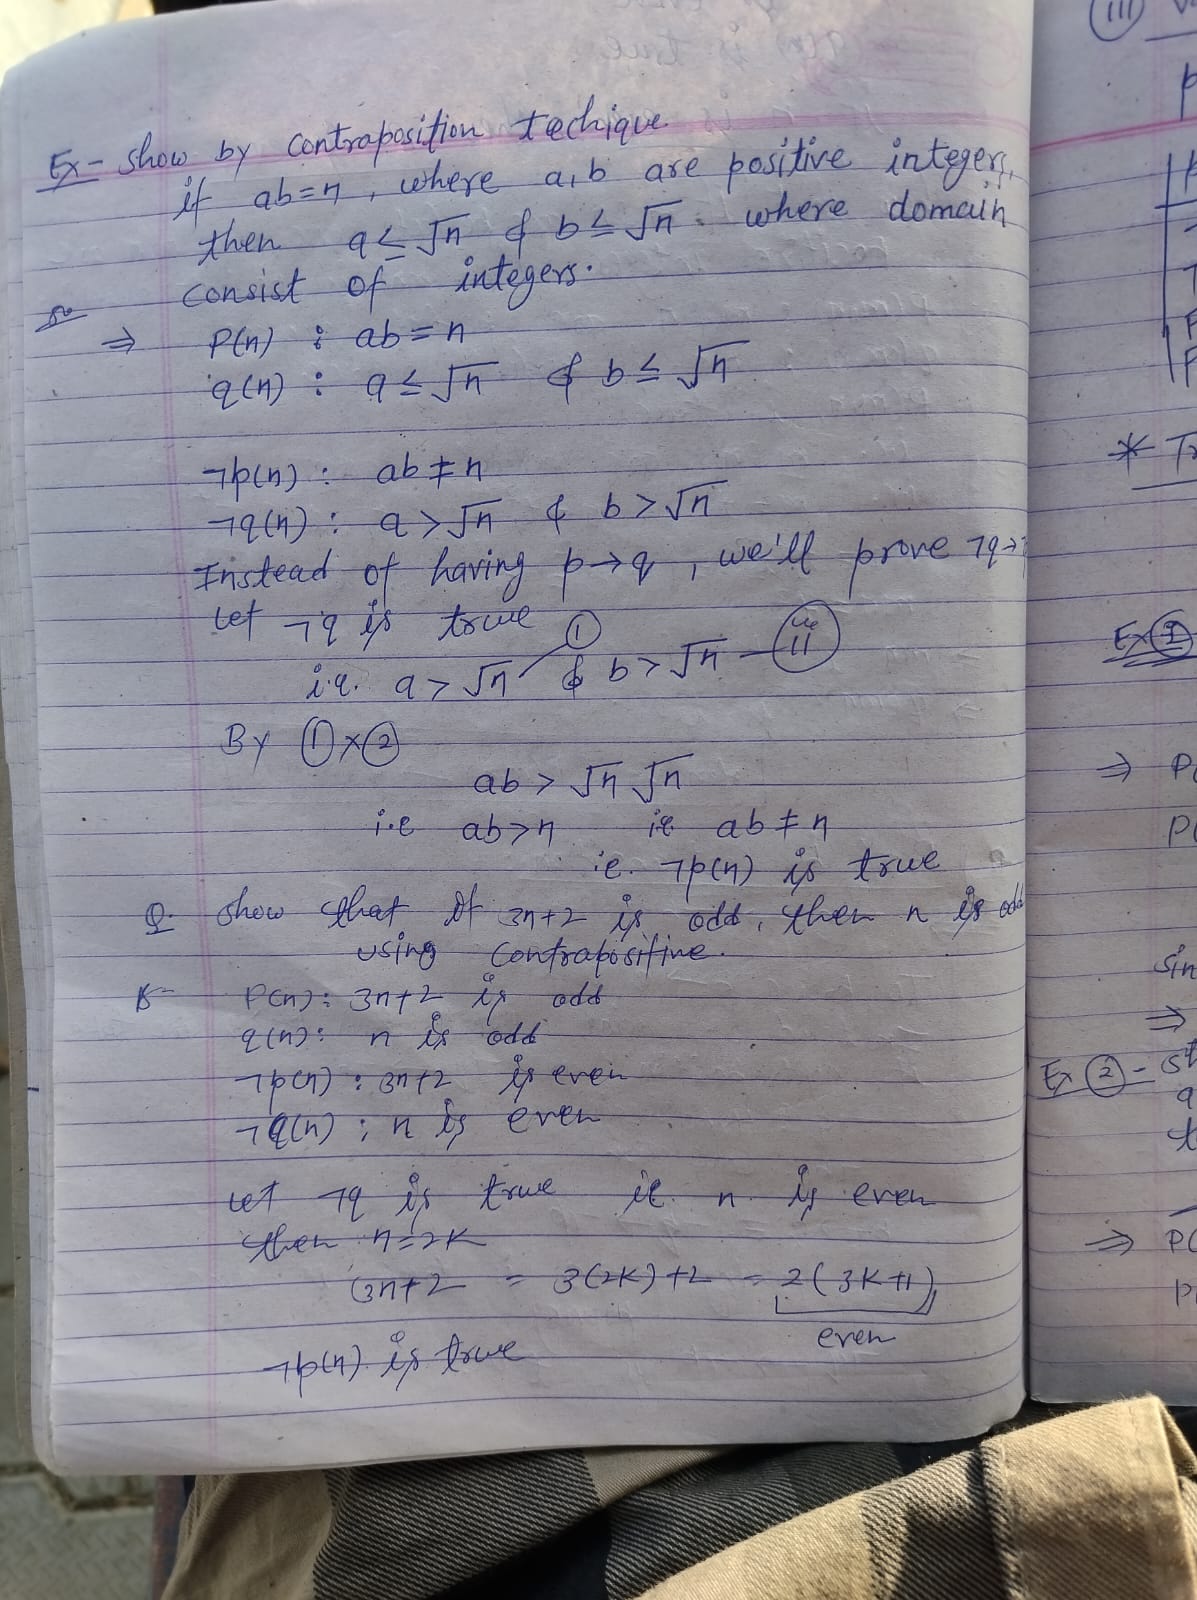 Ex- show by contraposition techique.
if ab=n, where a,b are positive integers,
then a≤√n & b≤√n. where domain
consist of integers.
⇒ P(n) : ab = n
q(n) : a ≤ √n & b ≤ √n
¬p(n) : ab ≠ n
¬q(n) : a > √n & b > √n
Instead of having p→q, we'll prove ¬q→
Let ¬q is true
i.e. a > √n ① & b > √n — ⑪
By ①×②
ab > √n √n
i.e ab>n ie ab ≠ n
ie. ¬p(n) is true
Q. show that if 3n+2 is odd, then n is odd
using contrapositive.
P(n): 3n+2 is odd
q(n): n is odd
¬p(n) : 3n+2 is even
¬q(n) : n is even
Let ¬q is true ie. n is even
then n=2k
(3n+2 = 3(2k)+2 = 2(3k+1)
even
¬p(n) is true
(iii)
* Tr
Ex ①
⇒ P(
P(
sin
⇒
Ex ② - st
a
t
⇒ P(